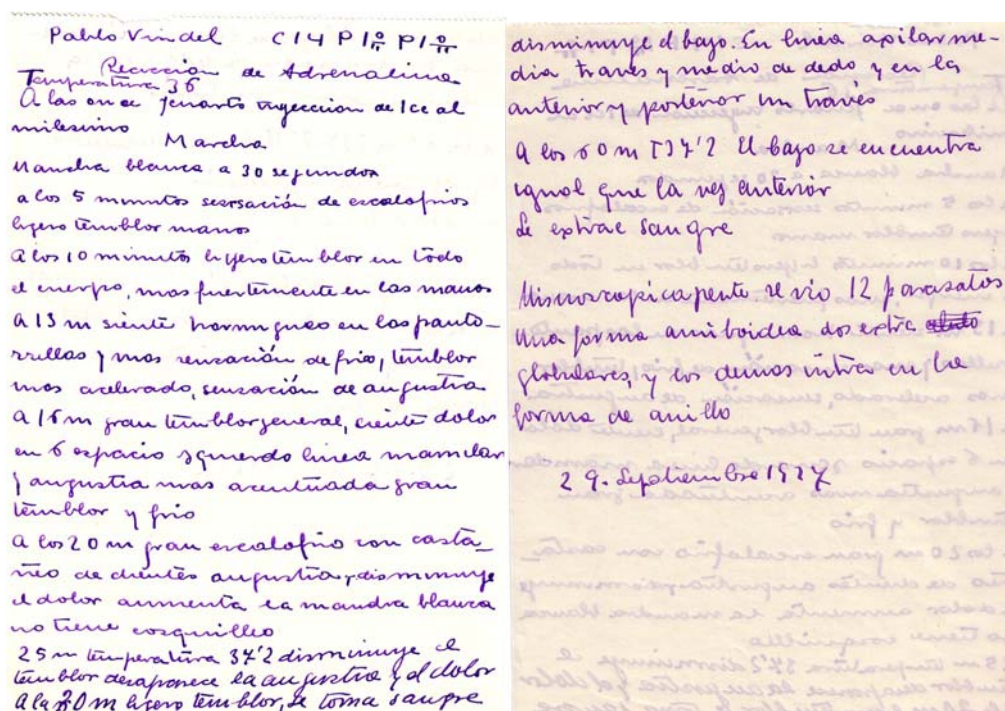 Pablo Vindel C 14 P I P I
Reacción de Adrenalina
Temperatura 36
A las once y cuarto inyeccion de 1 cc al
milesimo
Marcha
Mandra blanca a 30 segundos
a los 5 minutos sesrsación de escalofrios
ligero temblor manos
A los 10 minutos ligero temblor en todo
el cuerpo, mas fuertemente en las manos
A 13 m siente hormigueo en las panto-
rrillas y mas sensación de frio, temblor
mas acelerado, sensación de augustia
A 16 m gran temblor general, siente dolor
en 6 espacio izquierdo linea mamilar
y augustia mas acentuada gran
temblor y frio
A los 20 m gran escalofrio con casta_
ñeo de dientes augustia, y disminuye
el dolor aumenta la mandra blanca
no tiene cosquilleo
25 m temperatura 37'2 disminuye el
temblor desaparece la augustia y el dolor
A la 30 m ligero temblor, se toma sangre
disminuye el bajo. En linea axilar me-
dia través y medio de dedo y en la
anterior y posterior un través
A los 60 m T 37'2 El bajo se encuentra
igual que la vez anterior
Se extrae sangre
Miscroscopicapente se vio 12 parasatos
una forma amiboidea dos extra
globulares, y los demas intras en la
forma de anillo
29. Septiembre 1927